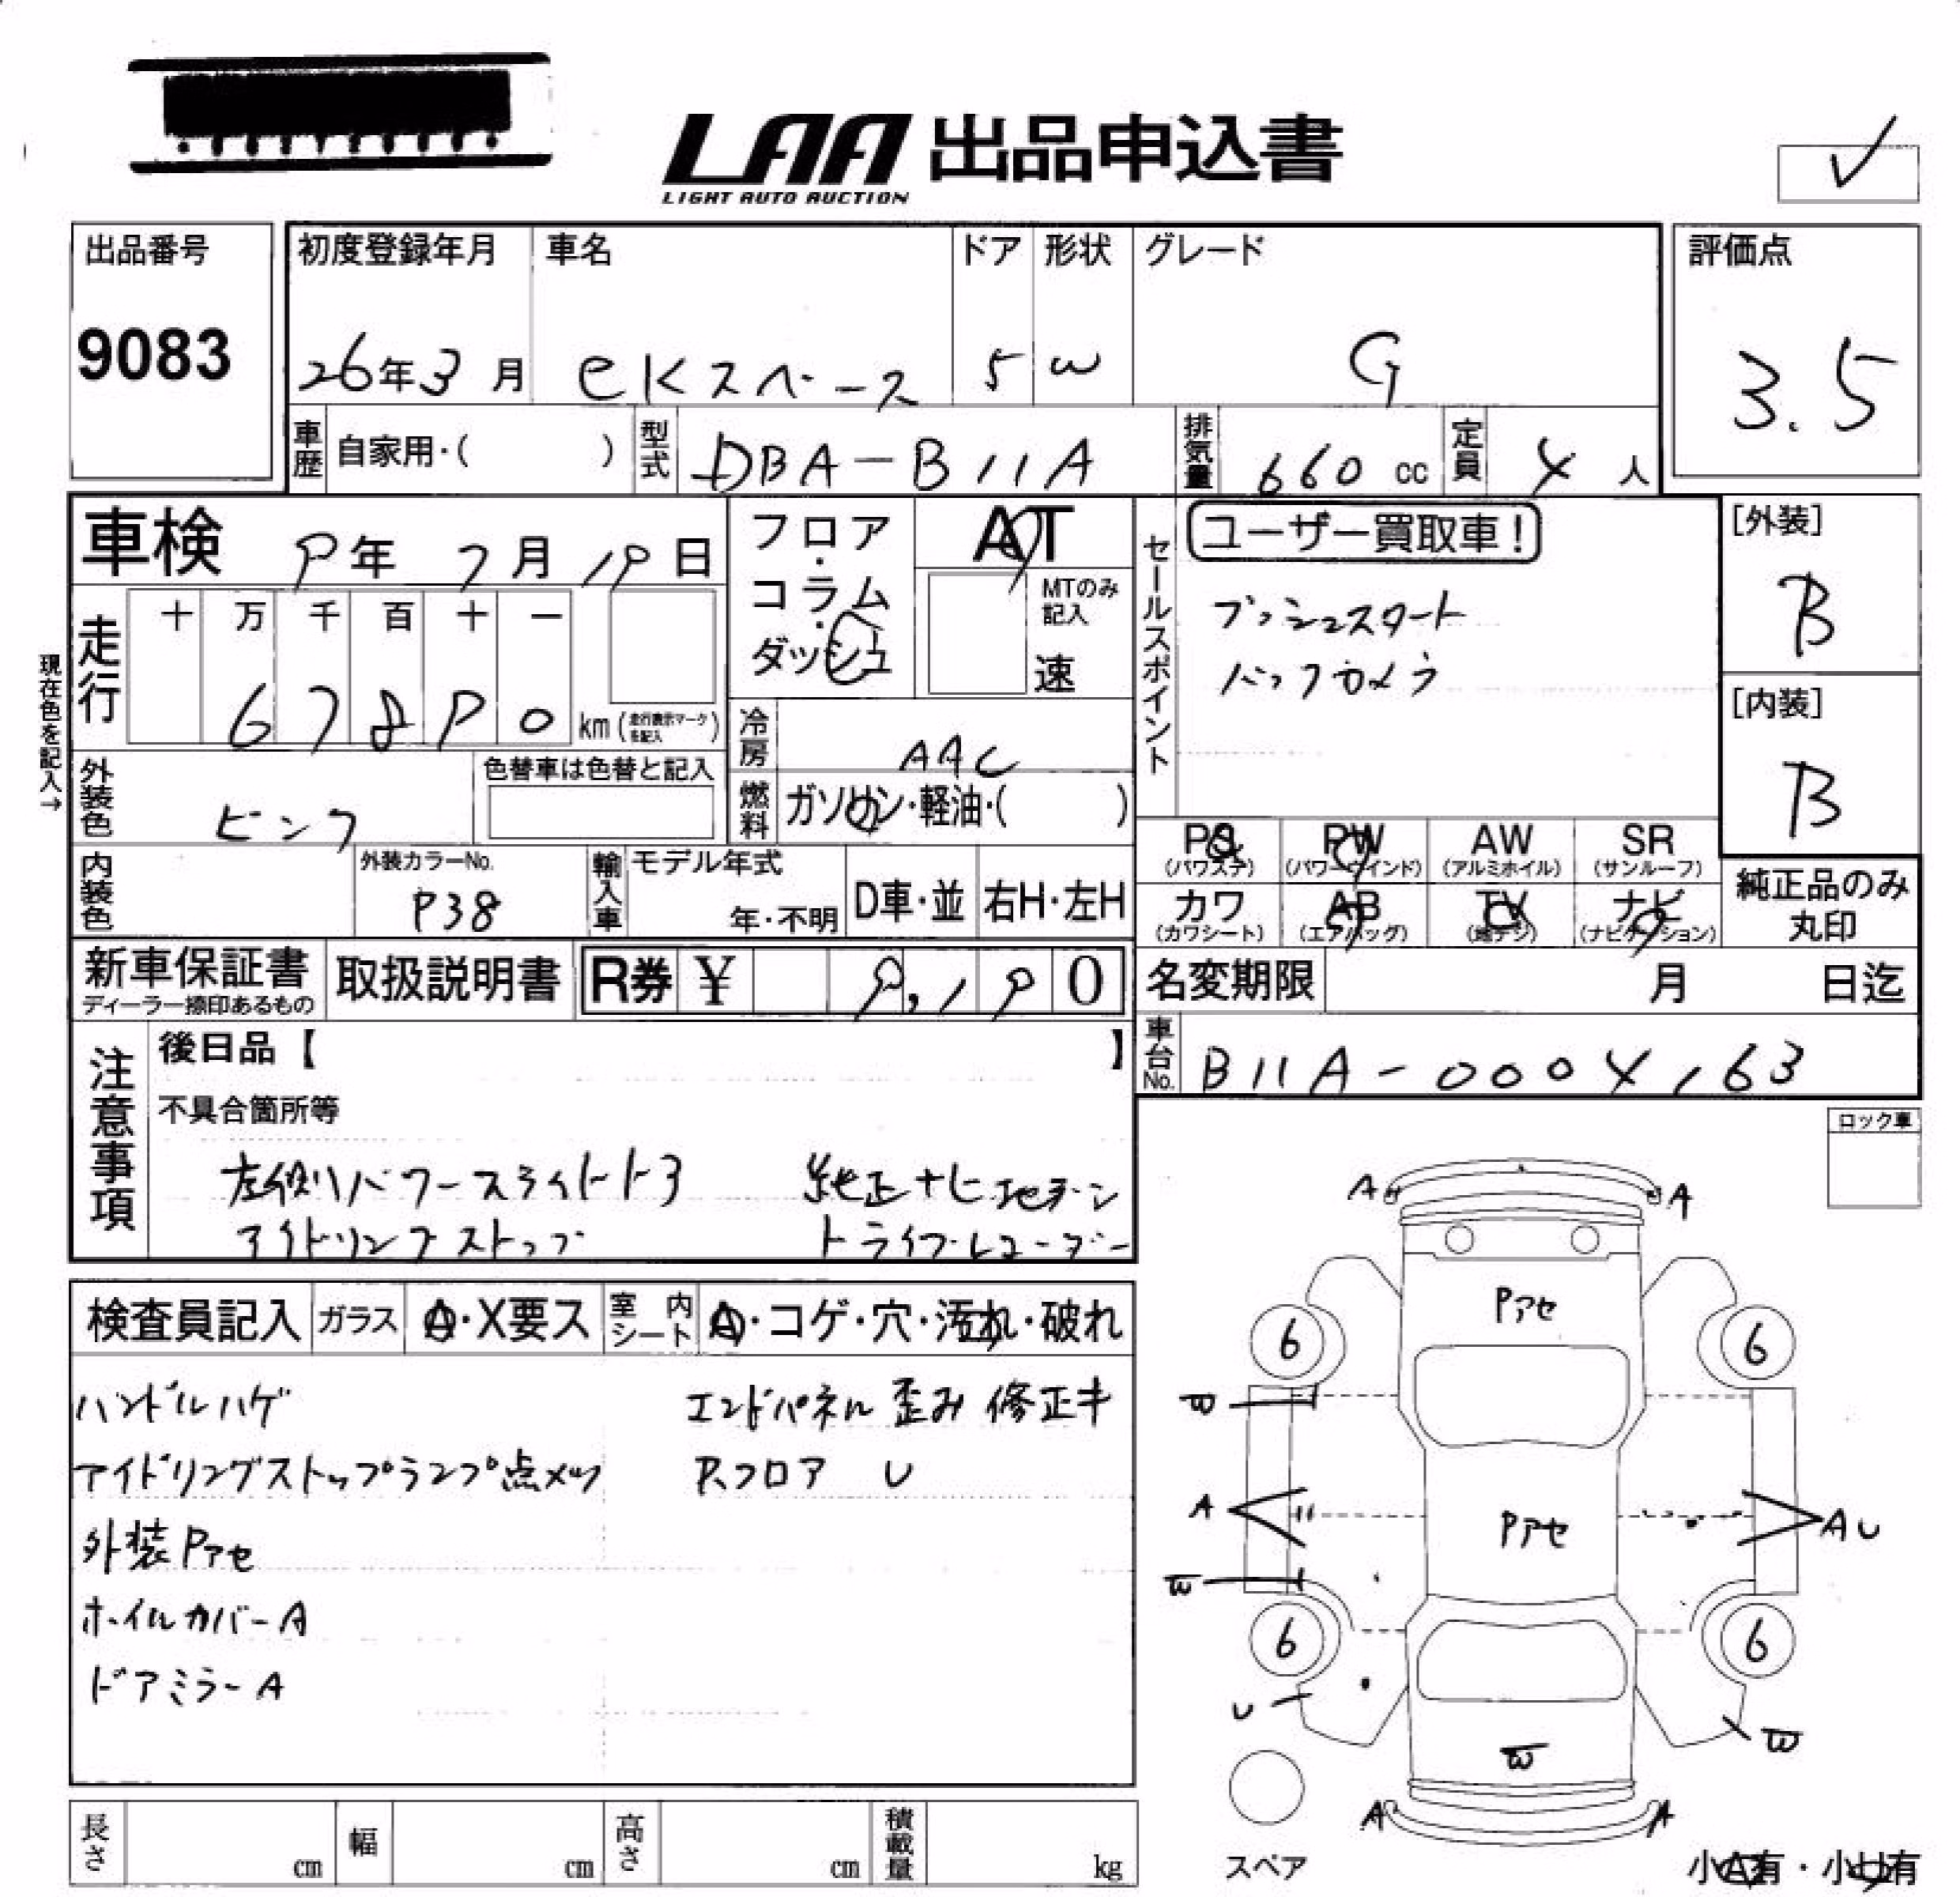 LAA 出品申込書
LIGHT AUTO AUCTION
出品番号
9083
初度登録年月
26年3月
車名
eKスペース
ドア
5
形状
W
グレード
G
評価点
3.5
車歴 自家用・( )
型式 DBA-B11A
排気量 660 cc
定員 4 人
車検 9年 7月 19日
フロア・コラム・ダッシュ
AT
MTのみ記入
速
現在色を記入→
走行 十 万 千 百 十 一
67890 km (走行表示マークを記入)
冷房 AAC
外装色 ピンク
色替車は色替と記入
燃料 ガソリン・軽油・( )
内装色
外装カラーNo.
P38
輸入車 モデル年式
年・不明
D車・並
右H・左H
セールスポイント
ユーザー買取車!
プッシュスタート
バックカメラ
[外装]
B
[内装]
B
PS (パワステ) PW (パワーウインド) AW (アルミホイル) SR (サンルーフ)
カワ (カワシート) AB (エアバッグ) TV (地デジ) ナビ (ナビゲーション)
純正品のみ丸印
新車保証書
ディーラー捺印あるもの
取扱説明書
R券 ¥ 9,190
名変期限 月 日迄
車台No. B11A-0004163
注意事項
後日品【 】
不具合箇所等
左側パワースライドドア 純正ナビ地デジ
アイドリングストップ ドライブレコーダー
ロック車
検査員記入 ガラス A・X要ス 室内シート A・コゲ・穴・汚れ・破れ
ハンドルハゲ エンドパネル 歪み 修正キ
アイドリングストップランプ点メツ Rフロア U
外装Pアセ
ホイルカバーA
ドアミラーA
A A
Pアセ
6 6
W
A Pアセ AU
W
6 6
U W
W
A A
スペア
小A有・小U有
長さ cm 幅 cm 高さ cm 積載量 kg